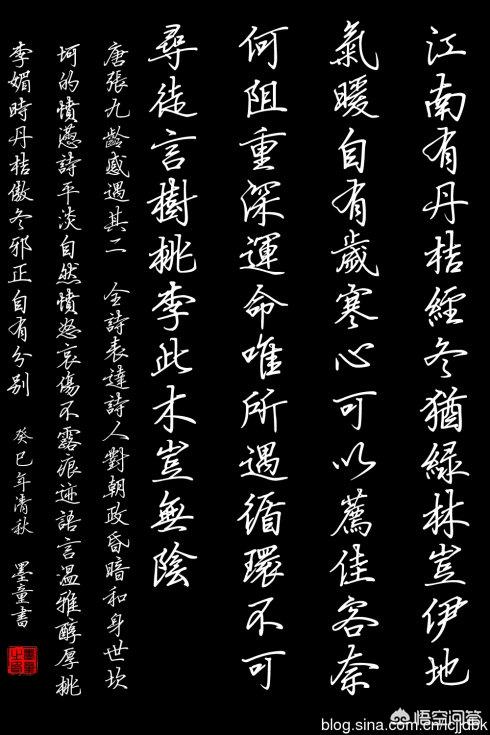 江南有丹桔經冬猶綠林豈伊地
氣暖自有歲寒心可以薦佳客奈
何阻重深運命唯所遇循環不可
尋徒言樹桃李此木豈無陰
唐張九齡感遇其二 全詩表達詩人對朝政昏暗和身世坎
坷的憤懑詩平淡自然憤怒哀傷不露痕迹語言温雅醇厚桃
李媚時丹桔傲冬邪正自有分别 癸巳年清秋 墨童書
悟空问答
blog.sina.com.cn/lcjjdbk